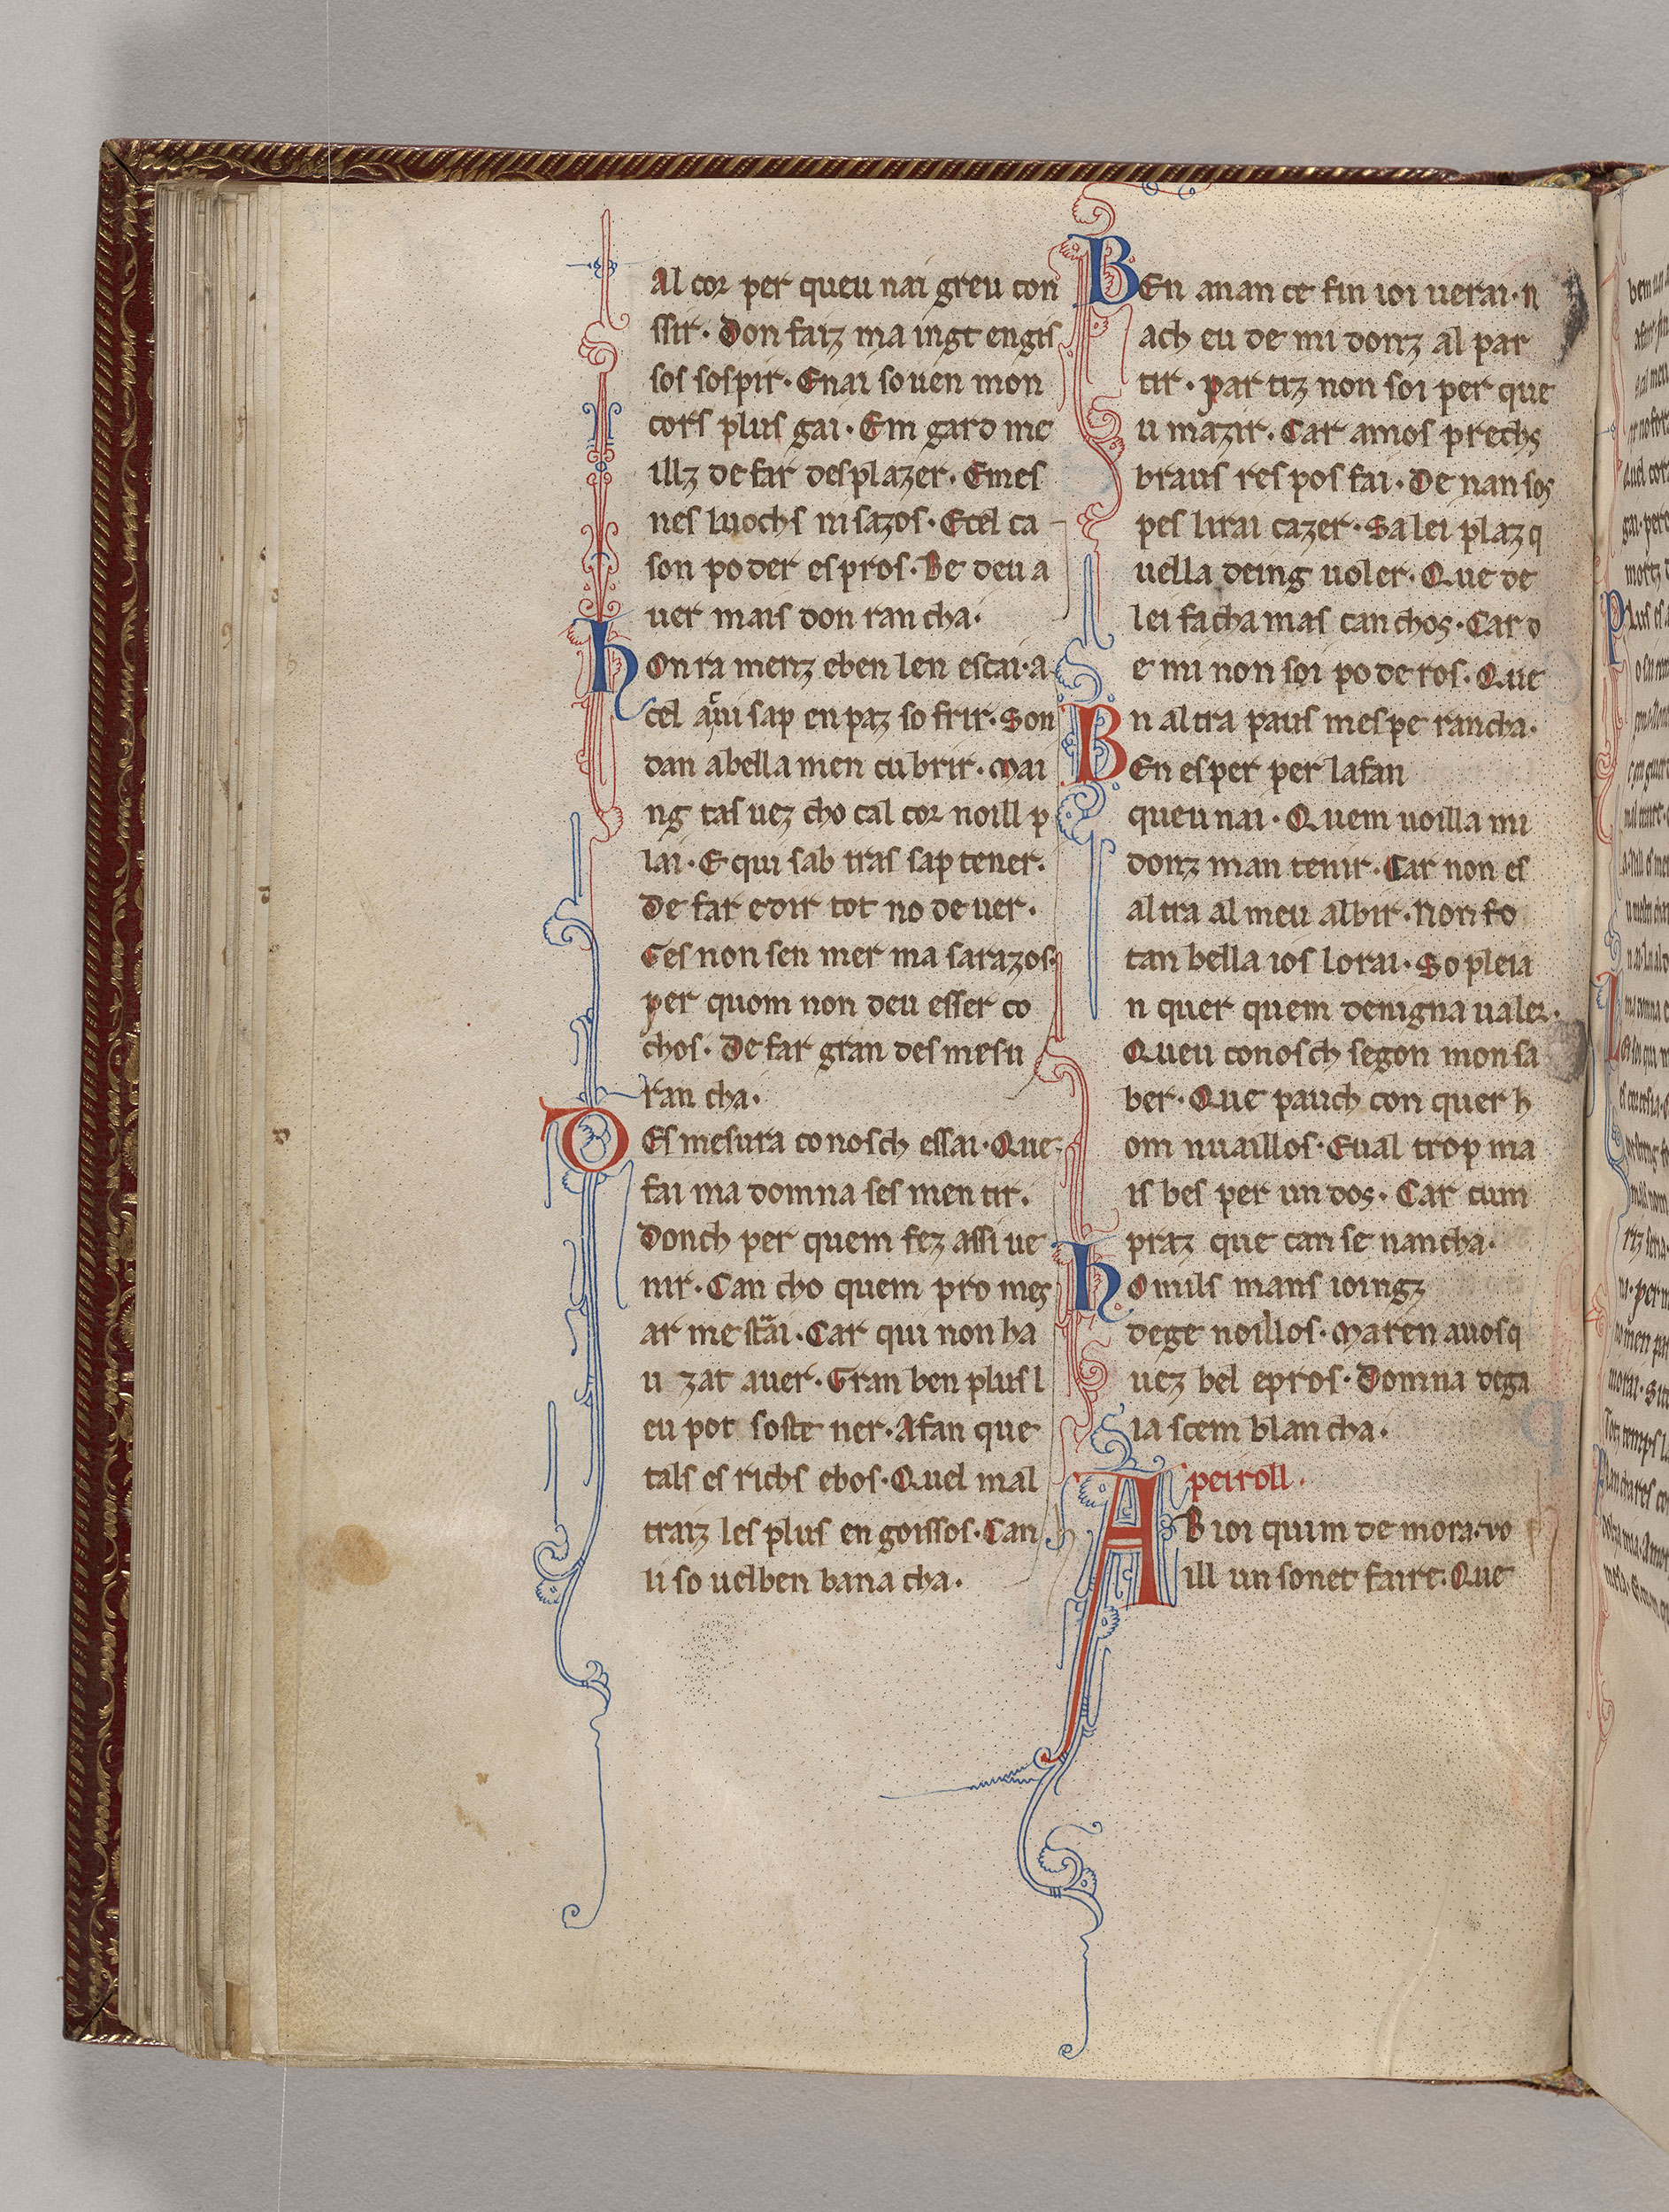 Al cor per queu nai greu con
ssir· Don faiz ma ingt engis
sos sospir· Enai souen mon
cors plus gai· Em gard me
illz de far desplazer· Emes
nes luochs ni sazos· Ecel ca
son poder espros· De deu a
uer mais don ran cha·
hOnra menz eben len escai· a
cel qui sap en paz so frir· Son
dan abella men cubrir· mai
ng tas uez cho cal cor noill p
lai· E qui sab tras sap tener·
De far edir tot no de uer·
Ges non sen mer ma sarazos·
per quom non deu esser co
chos· De far gran des mesu
ran cha·
DEs mesura conosch essai· Que
fai ma domna ses men tir·
Donch per quem fez assi ue
nir· Can cho quem pro mes
ar me strai· Car qui non ha
u zat auer· Gran ben plus l
eu pot soste ner· Afan que
tals es richs ebos· Quel mal
traiz les plus en goissos· Can
li so uelben bana cha·
BEn anan ce fin ioi uerai· n
ach eu de mi donz al par
tir· par tiz non soi per que
u mazir· Car amos prechs
braus res pos fai· De nan sos
pes lirai cazer· Sa lei plaz q
uella deing uoler· Que de
lei facha mas can chos· Car d
e mi non soi po de ros· Que
n altra paus mespe rancha·
BEn esper per lafan
queu nai· Quem uoilla mi
donz man tenir· Car non es
altra al meu albir· Non fo
tan bella ios lorai· So pleia
n quer quem denigna ualer·
Queu conosch segon mon sa
ber· Que pauch con quer h
om nuaillos· Eual trop ma
is bes per un dos· Car cum
praz que can se nancha·
hOmils mans ioingz
dege noillos· Maren auos q
uez bel epros· Domna dega
ia scem blan cha·
peiroll·
AB ioi quim de mora· uo
ill un sonet faire· Que